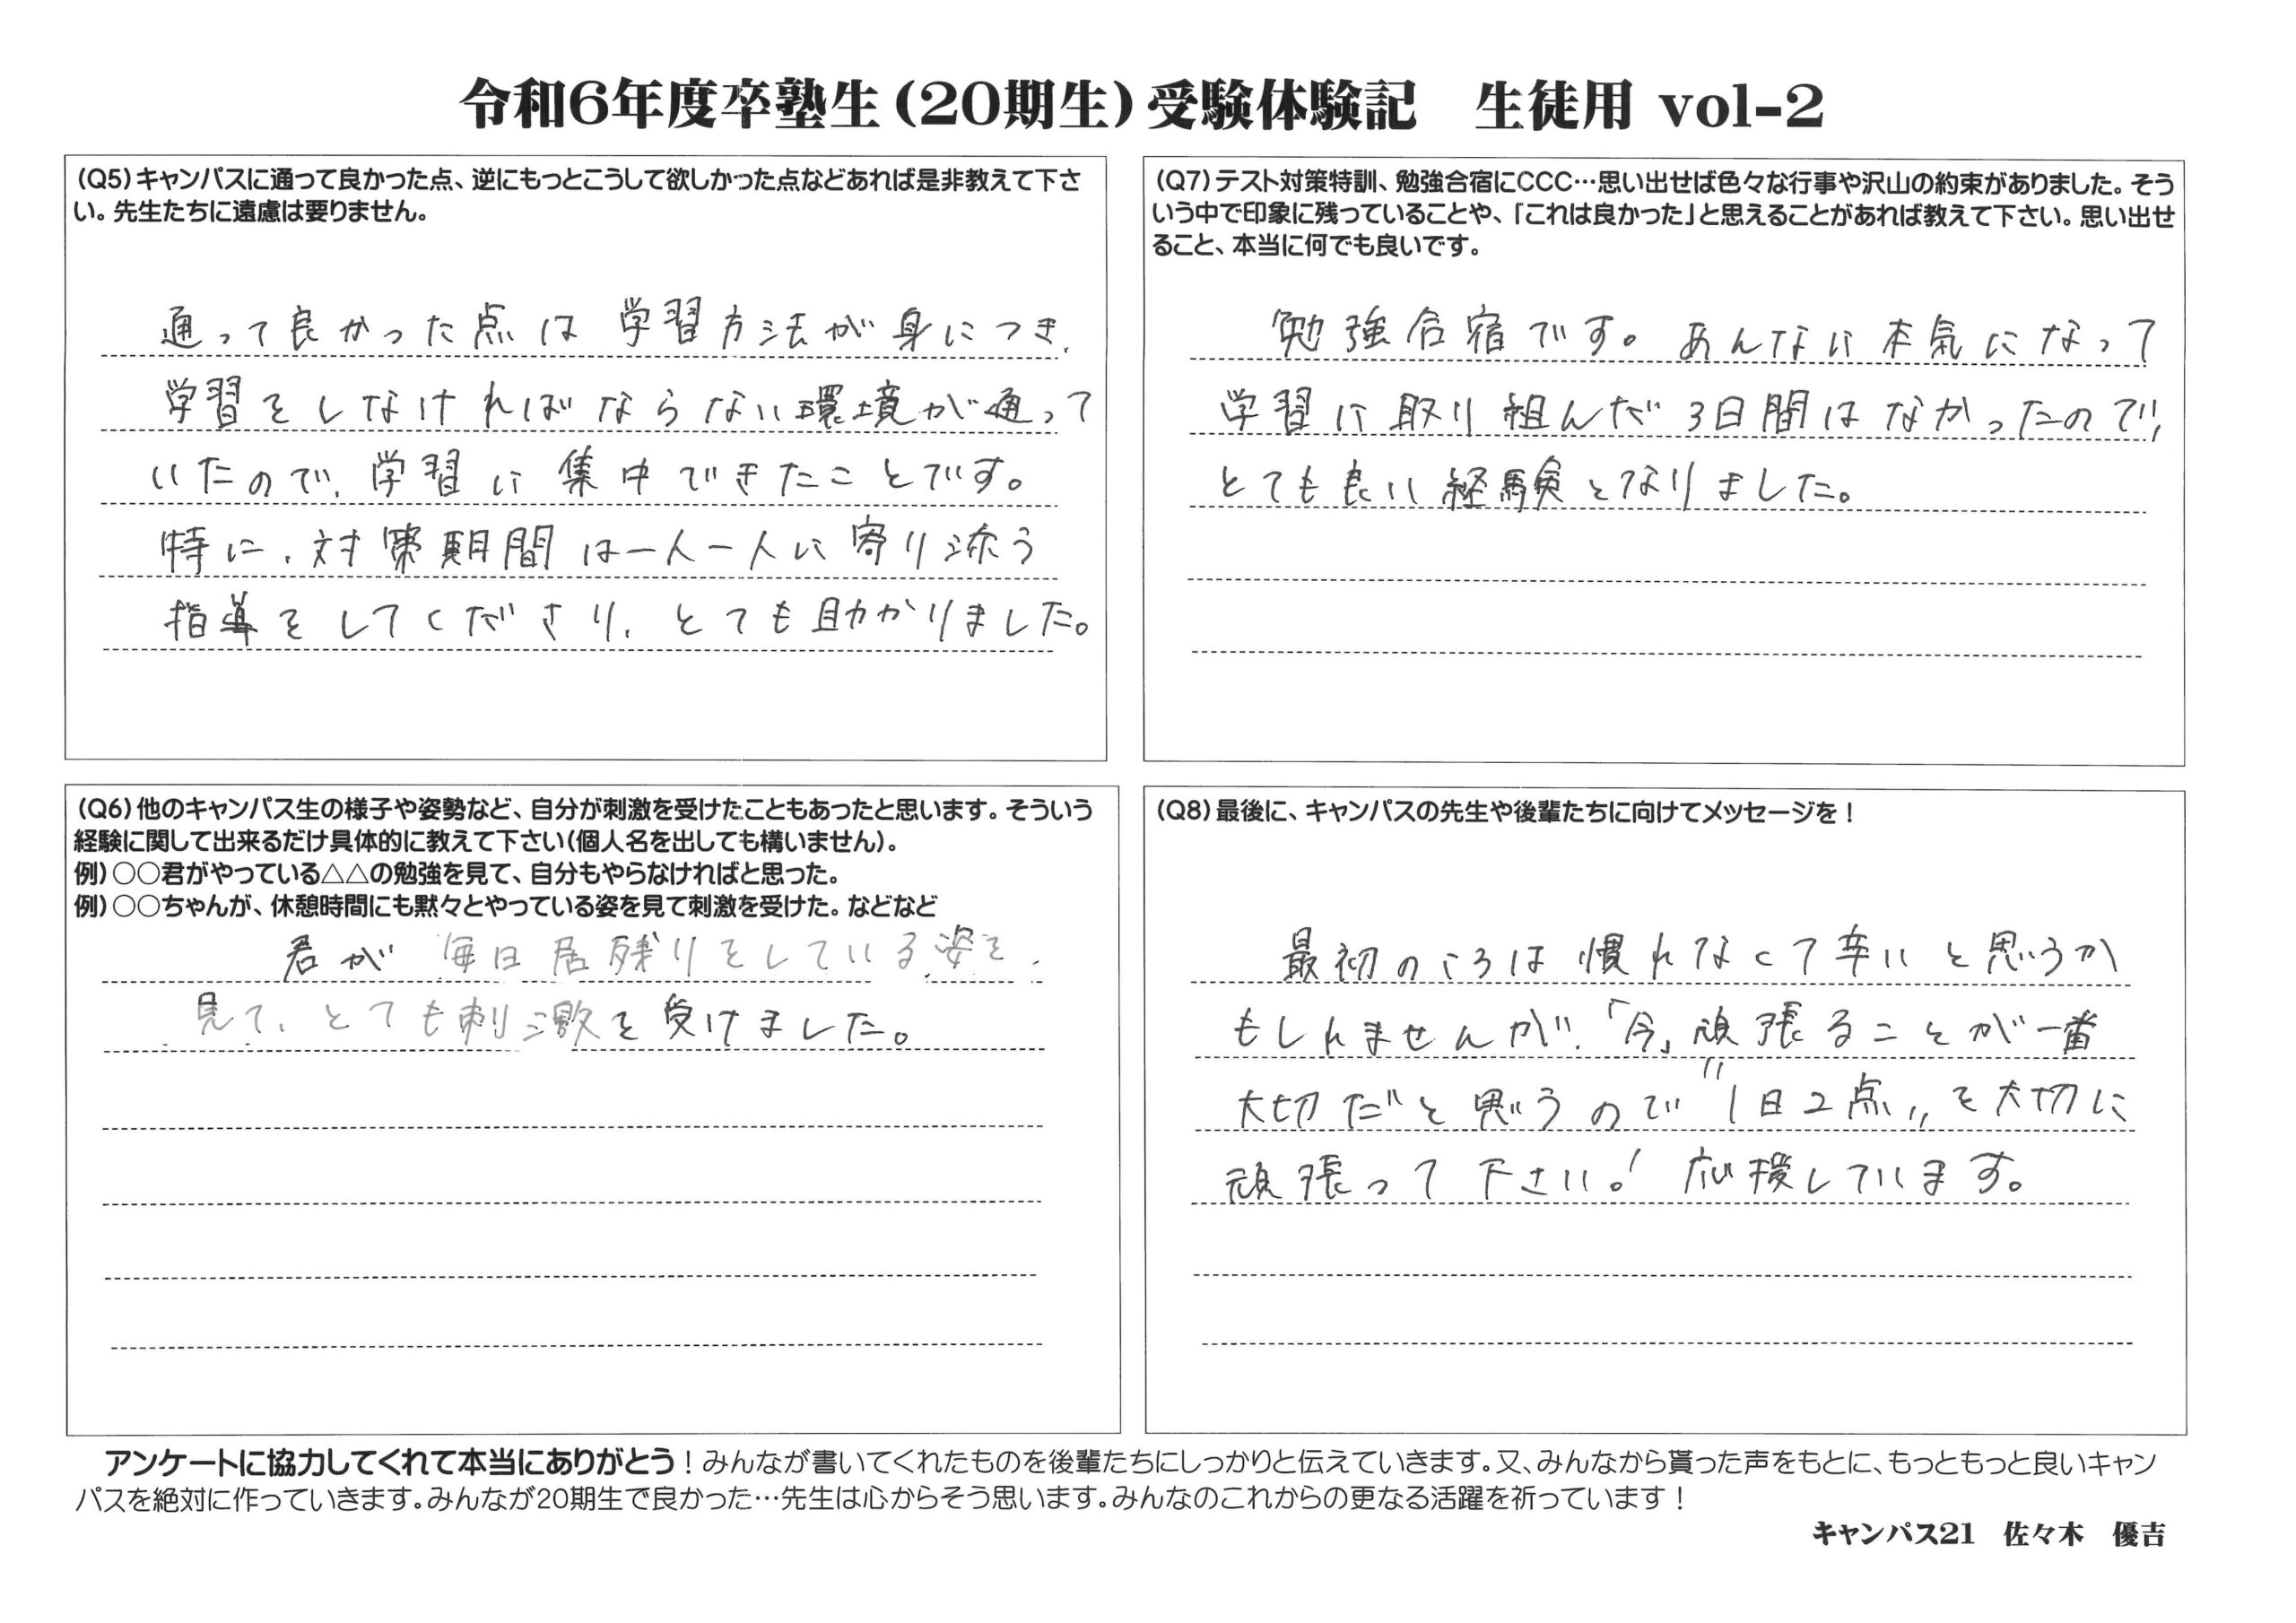 令和6年度卒塾生（20期生）受験体験記　生徒用 vol-2
（Q5）キャンパスに通って良かった点、逆にもっとこうして欲しかった点などあれば是非教えて下さ
い。先生たちに遠慮は要りません。
通って良かった点は学習方法が身につき、
学習をしなければならない環境が通って
いたので、学習に集中できたことです。
特に、対策期間は一人一人に寄り添う
指導をしてくださり、とても助かりました。
（Q6）他のキャンパス生の様子や姿勢など、自分が刺激を受けたこともあったと思います。そういう
経験に関して出来るだけ具体的に教えて下さい（個人名を出しても構いません）。
例）○○君がやっている△△の勉強を見て、自分もやらなければと思った。
例）○○ちゃんが、休憩時間にも黙々とやっている姿を見て刺激を受けた。などなど
君が毎日居残りをしている姿を
見て、とても刺激を受けました。
（Q7）テスト対策特訓、勉強合宿にCCC…思い出せば色々な行事や沢山の約束がありました。そう
いう中で印象に残っていることや、「これは良かった」と思えることがあれば教えて下さい。思い出せ
ること、本当に何でも良いです。
勉強合宿です。あんなに本気になって
学習に取り組んだ3日間はなかったので、
とても良い経験となりました。
（Q8）最後に、キャンパスの先生や後輩たちに向けてメッセージを！
最初のころは慣れなくて辛いと思うか
もしれませんが、「今」頑張ることが一番
大切だと思うので"1日2点"を大切に
頑張って下さい！応援しています。
アンケートに協力してくれて本当にありがとう！みんなが書いてくれたものを後輩たちにしっかりと伝えていきます。又、みんなから貰った声をもとに、もっともっと良いキャン
パスを絶対に作っていきます。みんなが20期生で良かった…先生は心からそう思います。みんなのこれからの更なる活躍を祈っています！
キャンパス21　佐々木　優吉